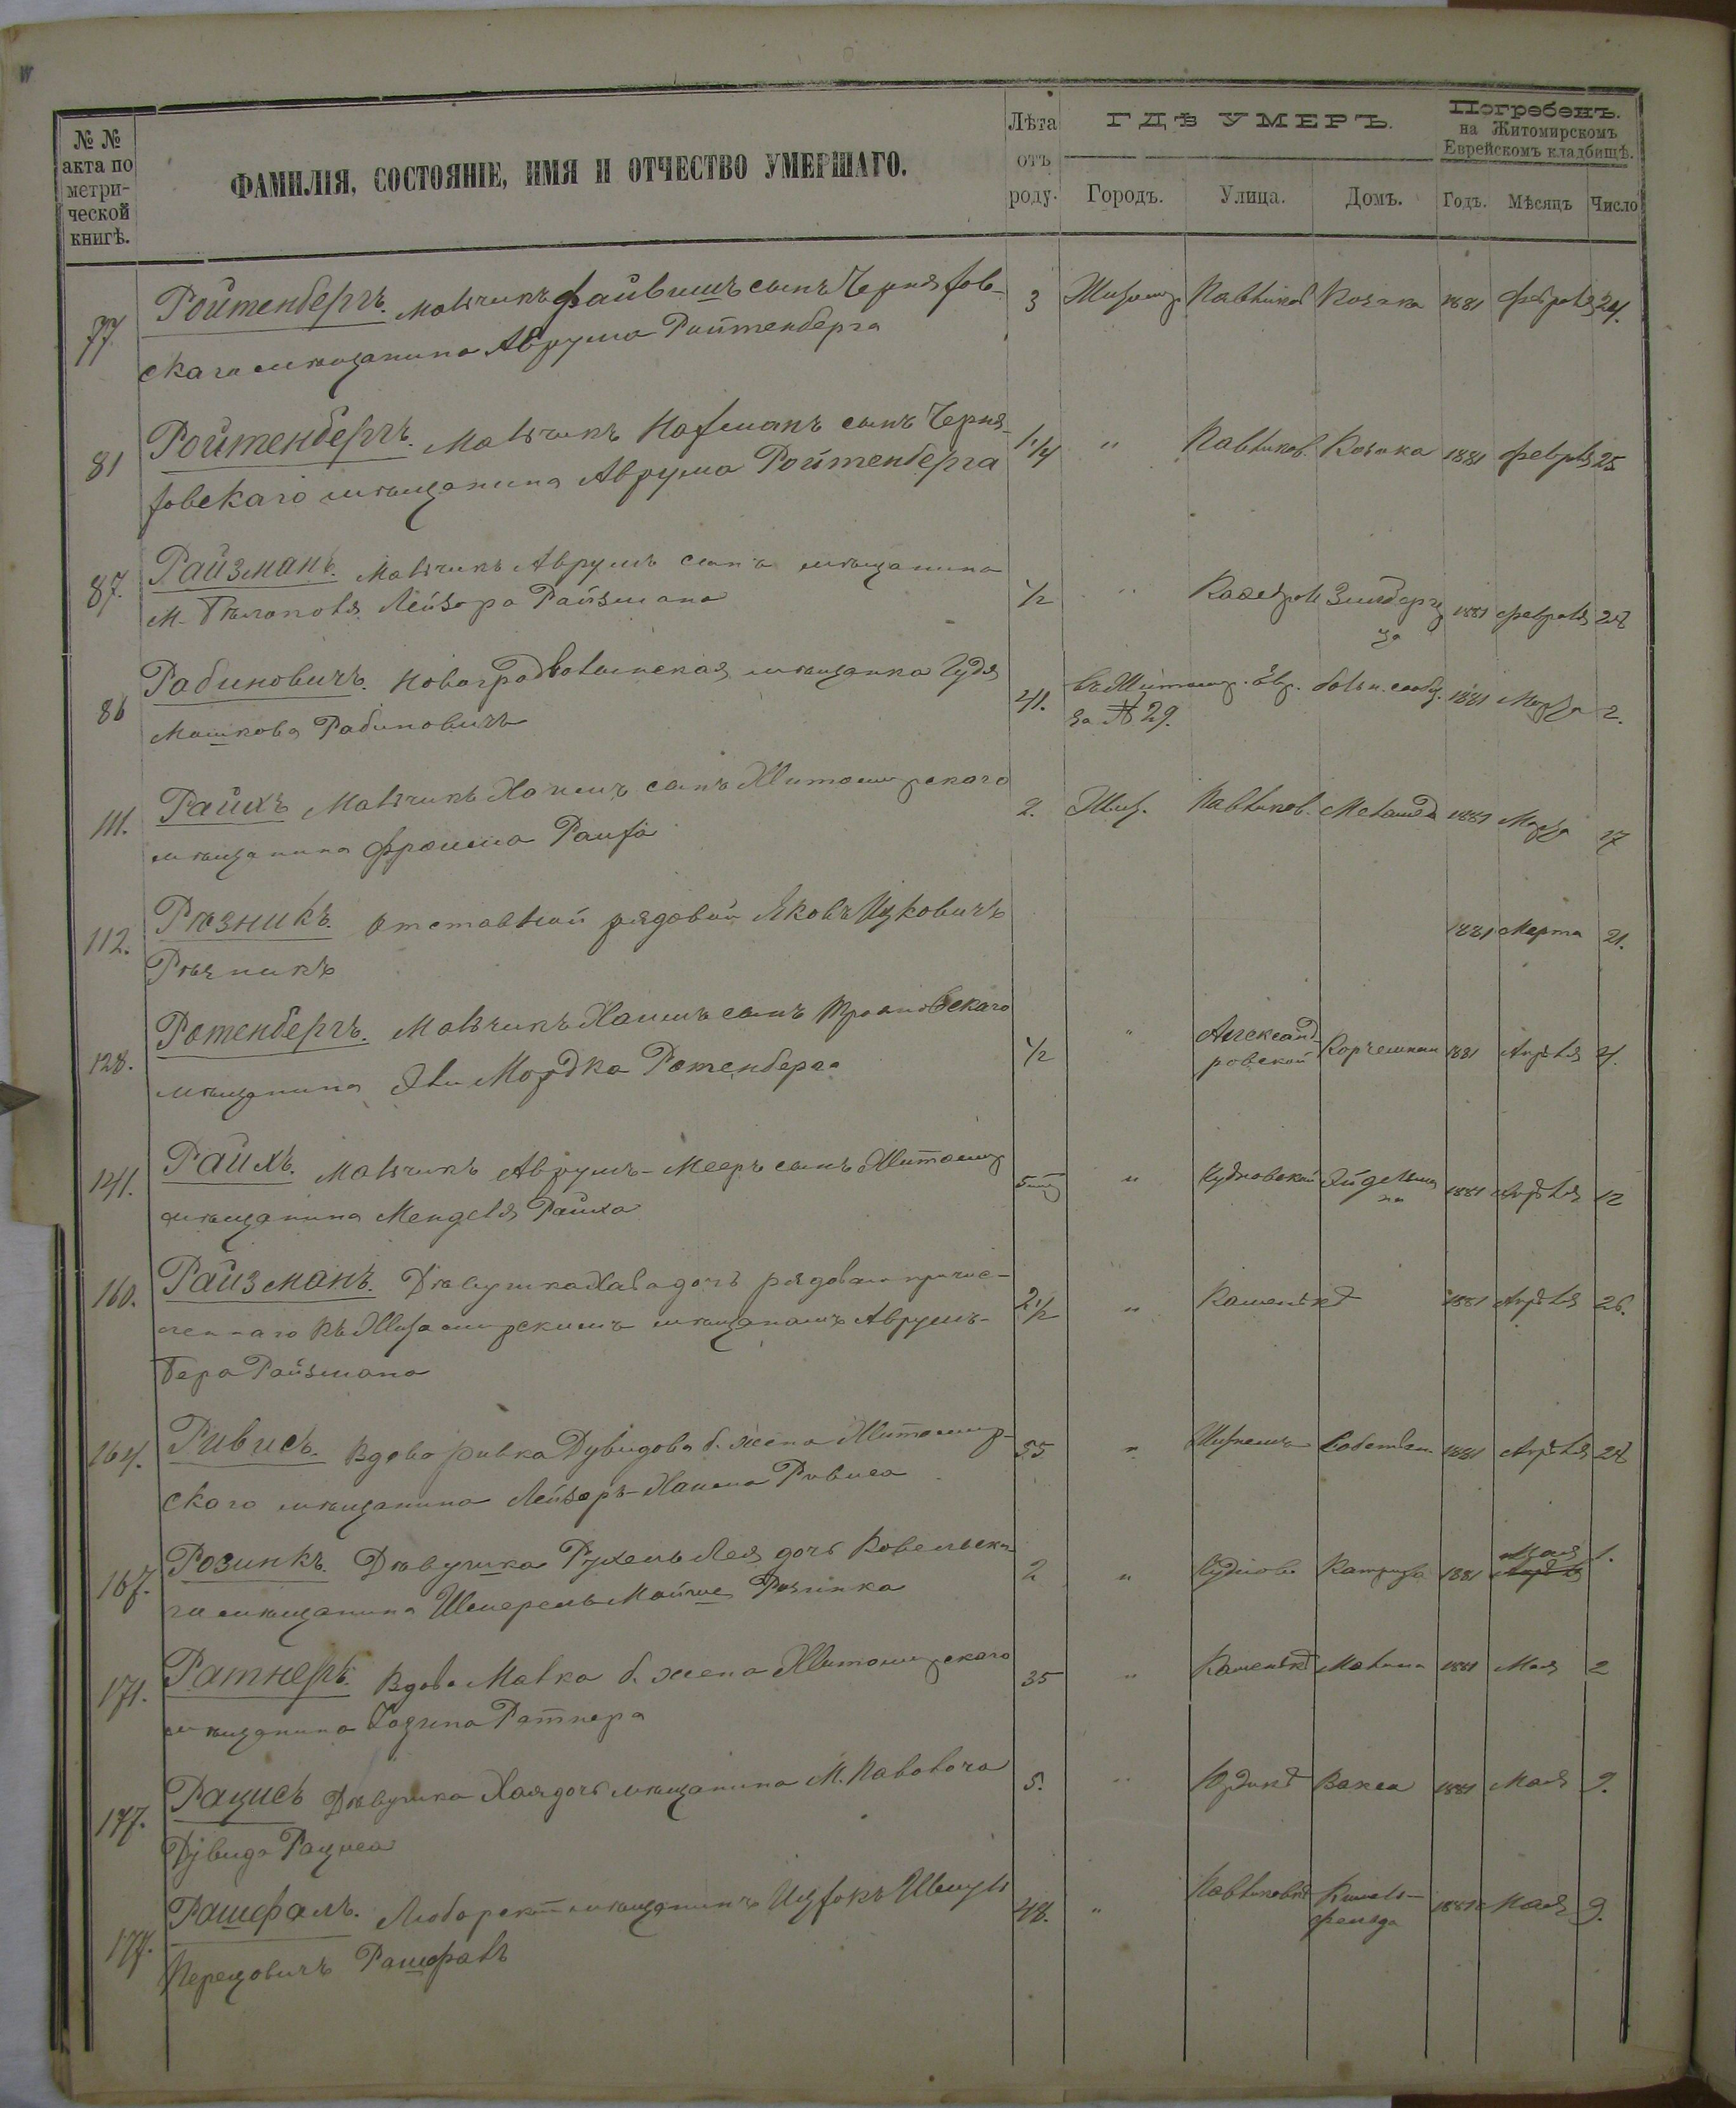 № № акта по метрической книгѣ.
ФАМИЛІЯ, СОСТОЯНІЕ, ИМЯ И ОТЧЕСТВО УМЕРШАГО.
Лѣта отъ роду.
ГДѢ УМЕРЪ.
Городъ. Улица. Домъ.
Погребенъ.
на Житомирскомъ
Еврейскомъ кладбищѣ.
Годъ. Мѣсяцъ Число
77 Ройтенбергъ. Мальчикъ Файвишъ сынъ Черняхов-
скаго мѣщанина Аврума Ройтенберга 3 Житомир Павликов Козака 1881 Февраля 24.
81 Ройтенбергъ. Мальчикъ Нахманъ сынъ Черня-
ховскаго мѣщанина Аврума Ройтенберга 1 1/4 " Павликов. Козака 1881 Февраля 25
87. Райзманъ. Мальчикъ Аврумъ сынъ мѣщанина
м. Лейзора Райзмана 1/2 " Кафедрал 1881 Февраля 28
86 Рабиновичъ. Новоградволынская мѣщанка Гудя
Машкова Рабиновичъ 41. въ Житомир. Евр. больн. 1881 Марта 2.
за № 29.
111. Райхъ Мальчикъ Хаимъ сынъ Житомирскаго
мѣщанина Фроима Райха 2. Жит. Павликов. Меламед 1881 Марта 17
112. Рѣзникъ. Отставной рядовой Яковъ Ицковичъ
Рѣзникъ 1881 Марта 21.
128. Ротенбергъ. Мальчикъ Хаимъ сынъ Трояновскаго
мѣщанина Эли Мордка Ротенберга 1/2 " Александ-
ровской 1881 Апрѣля 4.
141. Райхъ. Мальчикъ Аврумъ-Мееръ сынъ Житомир
мѣщанина Менделя Райха 5 " Чудновской Эйдельма
на 1881 Апрѣля 12
160. Райзманъ. Дѣвушка Хава дочь рядоваго причис-
леннаго къ Житомирскимъ мѣщанамъ Аврумъ-
Бера Райзмана 2 1/2 " 1881 Апрѣля 26.
164. Ривисъ. Вдова Ривка Дувидова б. жена Житомир-
скаго мѣщанина Лейзоръ-Хаима Ривиса 55 " Собствен. 1881 Апрѣля 28
167. Розинкъ. Дѣвушка Рухель Лея дочь Ковельска-
го мѣщанина Шмерель Мойше Розинка 2 " Чуднов. 1881 Мая 1.
171. Ратнеръ. Вдова Малка б. жена Житомирскаго
мѣщанина Ратнера 35 " 1881 Мая 2
177. Рацисъ Дѣвушка Хая дочь мѣщанина м. Паволоча
Дувида Рациса 5. " Вакса 1881 Мая 9.
177. Рашфалъ. мѣщанинъ Ицхокъ Шмуль
Перецовичъ Рашфалъ 48. " Павликовк 1881 Мая 9.